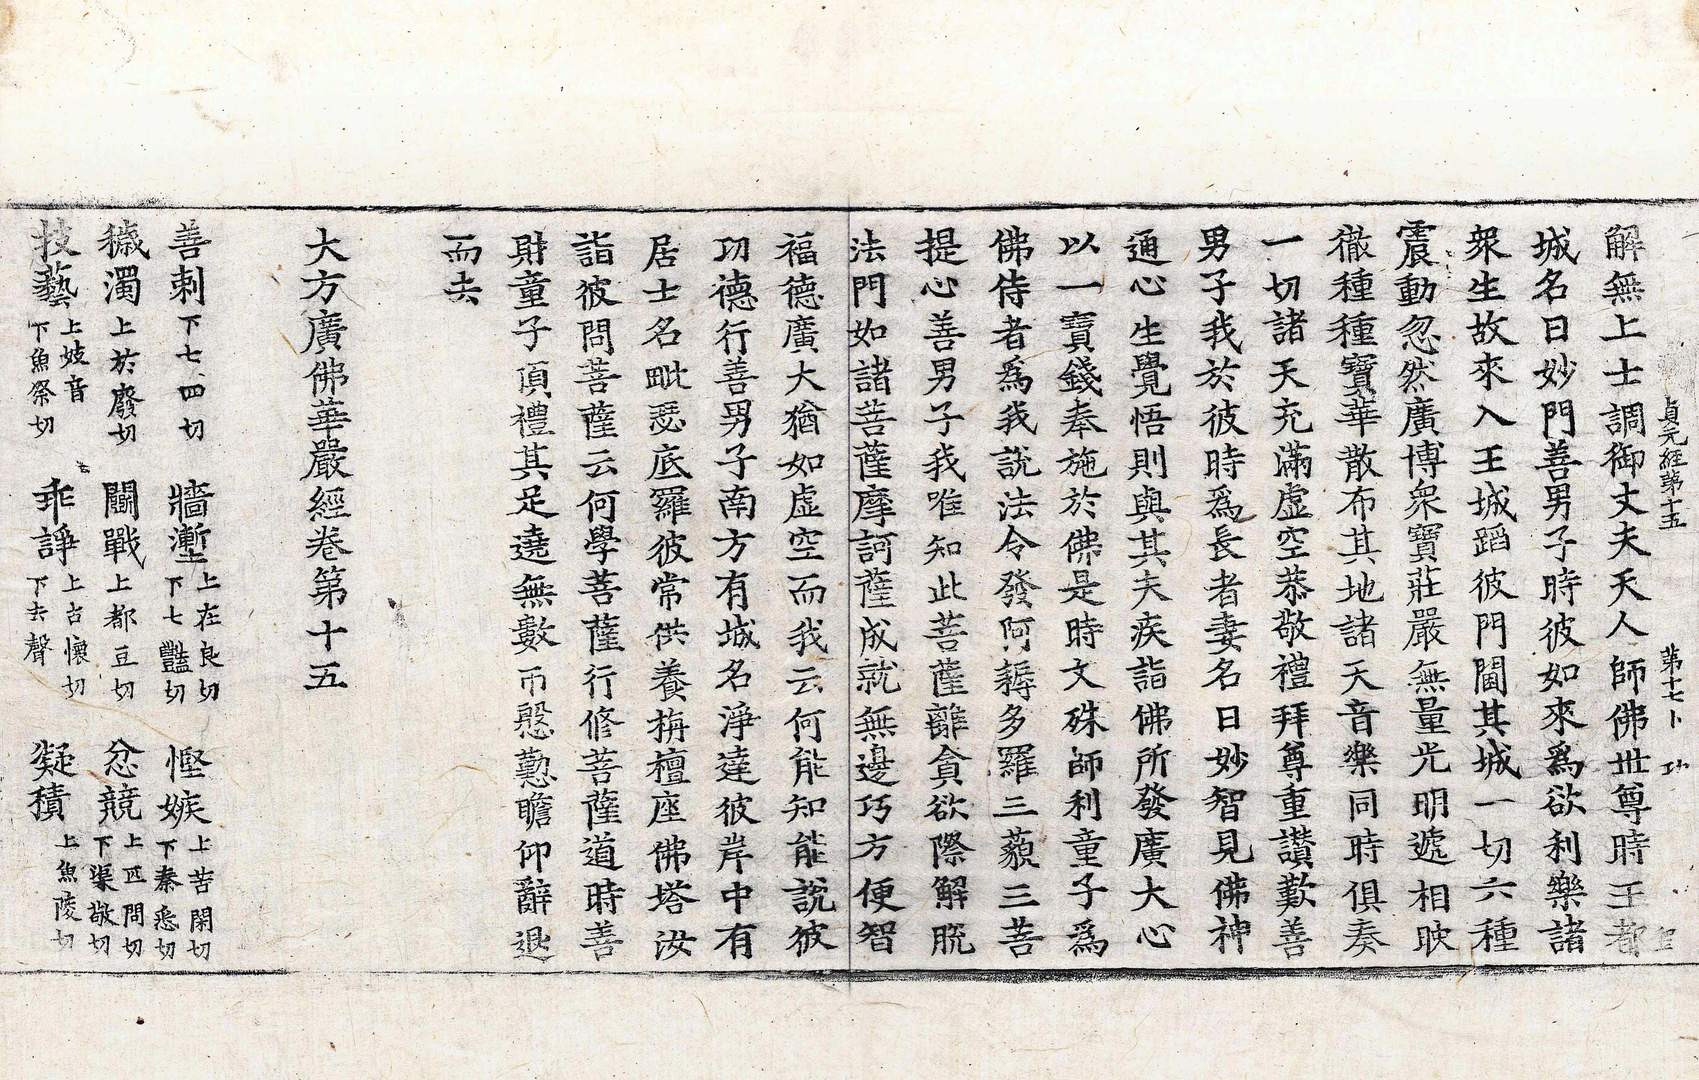 貞元經第十五 第十七卜 功
解無上士調御丈夫天人師佛世尊時王都
城名曰妙門善男子時彼如來爲欲利樂諸
衆生故來入王城蹈彼門閫其城一切六種
震動忽然廣博衆寶莊嚴無量光明遞相映
徹種種寶華散布其地諸天音樂同時俱奏
一切諸天充滿虛空恭敬禮拜尊重讚歎善
男子我於彼時爲長者妻名曰妙智見佛神
通心生覺悟則與其夫疾詣佛所發廣大心
以一寶錢奉施於佛是時文殊師利童子爲
佛侍者爲我說法令發阿耨多羅三藐三菩
提心善男子我唯知此菩薩離貪欲際解脫
法門如諸菩薩摩訶薩成就無邊巧方便智
福德廣大猶如虛空而我云何能知能說彼
功德行善男子南方有城名淨達彼岸中有
居士名毗瑟底羅彼常供養栴檀座佛塔汝
詣彼問菩薩云何學菩薩行修菩薩道時善
財童子頂禮其足遶無數帀慇懃瞻仰辭退
而去
大方廣佛華嚴經卷第十五
善刺 下七四切 牆塹 上在良切下七豔切 慳嫉 上苦閑切下秦悉切
穢濁 上於廢切 鬬戰 上都豆切 忿競 上匹問切下渠敬切
技藝 上妓音下魚祭切 乖諍 上古懷切下去聲 凝積 上魚陵切